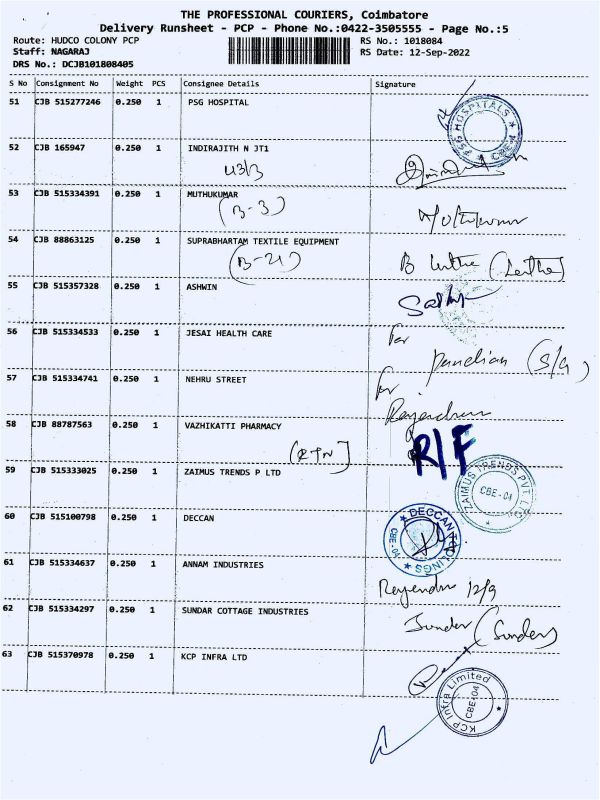 THE PROFESSIONAL COURIERS, Coimbatore
Delivery Runsheet - PCP - Phone No.:0422-3505555 - Page No.:5
Route: HUDCO COLONY PCP
RS No.: 1018084
Staff: NAGARAJ
RS Date: 12-Sep-2022
DRS No.: DCJB101808405
S No Consignment No Weight PCS Consignee Details Signature
51 CJB 515277246 0.250 1 PSG HOSPITAL
PSG HOSPITALS ★ CBE-4 ★
52 CJB 165947 0.250 1 INDIRAJITH N JT1
43/3
53 CJB 515334391 0.250 1 MUTHUKUMAR
(B-3)
Muthukumar
54 CJB 88863125 0.250 1 SUPRABHARTAM TEXTILE EQUIPMENT
(B-21)
55 CJB 515357328 0.250 1 ASHWIN
56 CJB 515334533 0.250 1 JESAI HEALTH CARE
for
Pandian (S/G)
57 CJB 515334741 0.250 1 NEHRU STREET
for
Rajendran
58 CJB 88787563 0.250 1 VAZHIKATTI PHARMACY
(RTN]
R/F
59 CJB 515333025 0.250 1 ZAIMUS TRENDS P LTD
ZAIMUS TRENDS PVT LTD
CBE-04
60 CJB 515100798 0.250 1 DECCAN
★ DECCAN
★ CBE-
61 CJB 515334637 0.250 1 ANNAM INDUSTRIES
Rajendran 12/9
62 CJB 515334297 0.250 1 SUNDAR COTTAGE INDUSTRIES
Sunder (Sunder)
63 CJB 515370978 0.250 1 KCP INFRA LTD
KCP Infra Limited ★
CBE-04